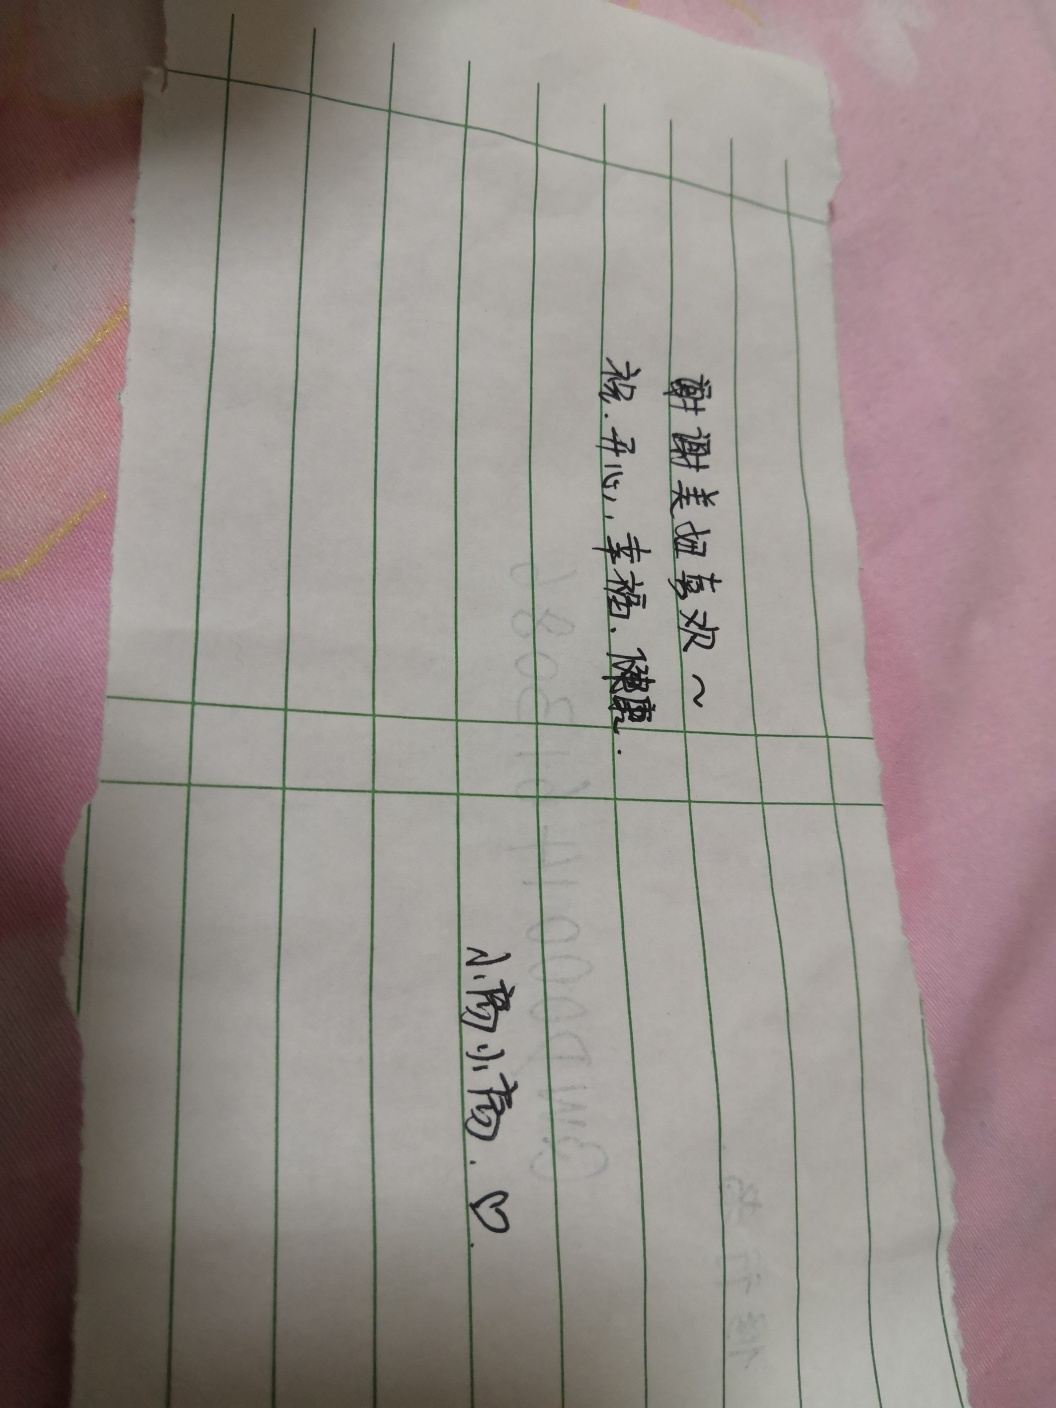 谢谢美妞喜欢~
祝.开心,.幸福.健康.
小高小高.♡.